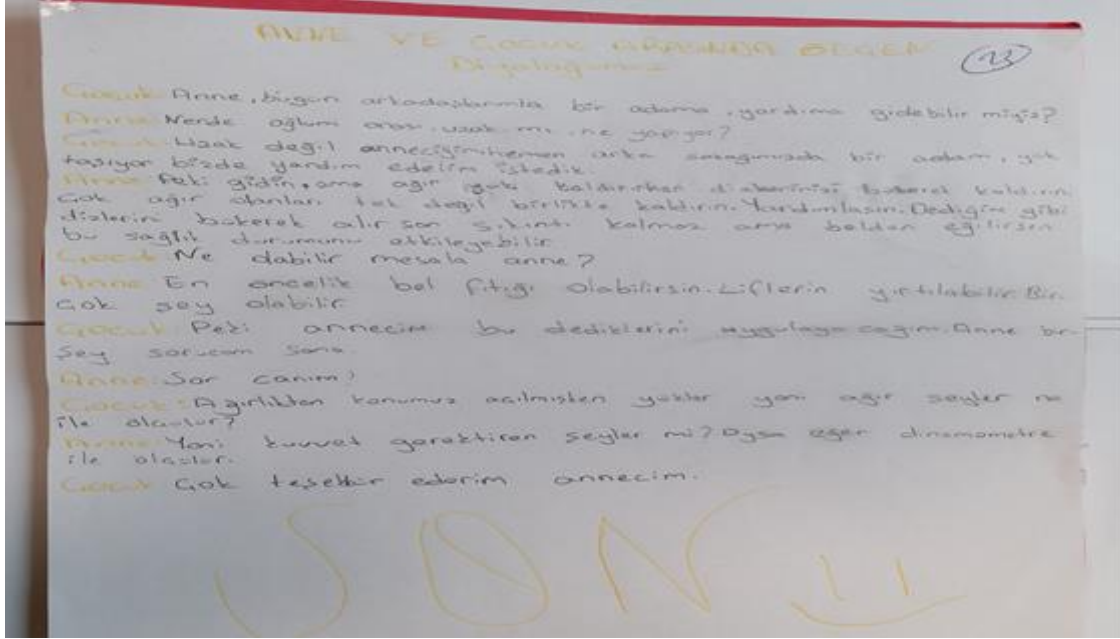 ANNE VE ÇOCUK ARASINDA GEÇEN
Diyaloğumuz
23
Çocuk: Anne, birgün arkadaşlarımla bir adama, yardıma gidebilir miyiz?
Anne: Nerde oğlum orası uzak mı, ne yapıyor?
Çocuk: Uzak değil anneciğim hemen arka sokağımızda bir adam, yük
taşıyor bizde yardım edelim istedik.
Anne: Peki gidin, ama ağır yük kaldırırken dizlerinizi bükerek kaldırın.
Çok ağır olanları tek değil birlikte kaldırın. Yardımlaşın. Dediğim gibi
dizlerini bükerek alırsan sıkıntı kalmaz ama belden eğilirsen
bu sağlık durumunu etkileyebilir.
Çocuk: Ne olabilir mesela anne?
Anne: En öncelik bel fıtığı olabilirsin. Liflerin yırtılabilir. Bir
çok şey olabilir
Çocuk: Peki annecim bu dediklerini uygulayacağım. Anne bir
şey sorucam sana.
Anne: Sor canım?
Çocuk: Ağırlıktan konumuz açılmışken yükler yani ağır şeyler ne
ile ölçülür?
Anne: Yani kuvvet gerektiren şeyler mi? Oysa eğer dinamometre
ile ölçülür.
Çocuk Çok teşekkür ederim annecim.
SON